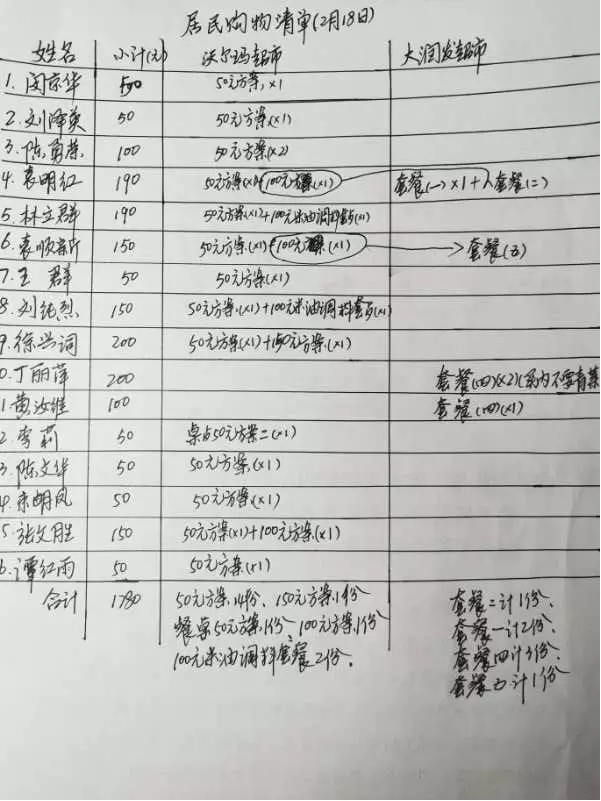 居民购物清单(2月18日)
姓名 小计(元) 沃尔玛超市 大润发超市
1. 闵京华 50 50元方案,×1
2. 刘泽英 50 50元方案(×1)
3. 陈勇荣 100 50元方案(×2)
4. 袁明红 190 50元方案(×1) 100元方案(×1) 套餐(一)×1+套餐(二)
5. 林立群 190 50元方案(×1)+100元米油调料套(×1)
6. 袁顺新 150 50元方案(×1)+100元方案(×1) 套餐(五)
7. 王群 50 50元方案(×1)
8. 刘纯烈 150 50元方案(×1)+100元米油调料套(×1)
9. 徐兴词 200 50元方案(×1)+150元方案(×1)
0. 丁丽萍 200 套餐(四)(×2)(系内不要青菜
1. 黄汝维 100 套餐(四)(×1)
2. 李莉 50 桌上50元方案二(×1)
3. 陈文华 50 50元方案(×1)
4. 明凤 50 50元方案(×1)
5. 张文胜 150 50元方案(×1)+100元方案(×1)
6. 谭红雨 50 50元方案(×1)
合计 1780 50元方案14份、150元方案1份 套餐二计1份、
餐桌50元方案1份、100元方案1份 套餐一计2份、
100元米油调料套餐2份、 套餐四计3份、
套餐五计1份